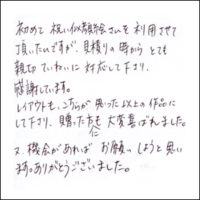 初めて 祝い似顔絵さんを利用させて
頂いたのですが、見積りの時から とても
親切 ていねいに 対応して下さり、
感謝しています。
レイアウトも、こちらが 思った以上の作品に
して下さり、贈った方も 大変喜ばれました。
に
又、機会があれば お願いしようと思い
ます。ありがとうございました。